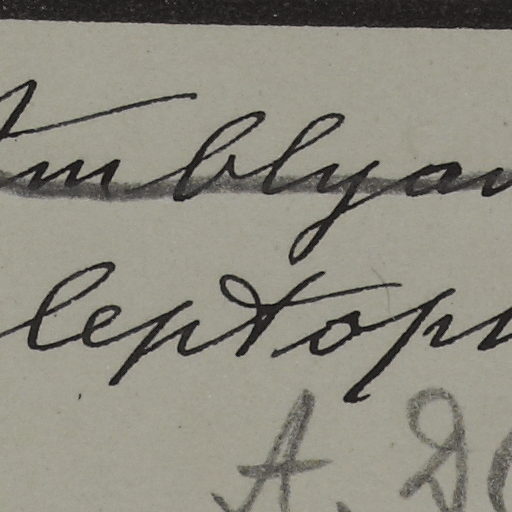 Amblyan
leptop
A. D